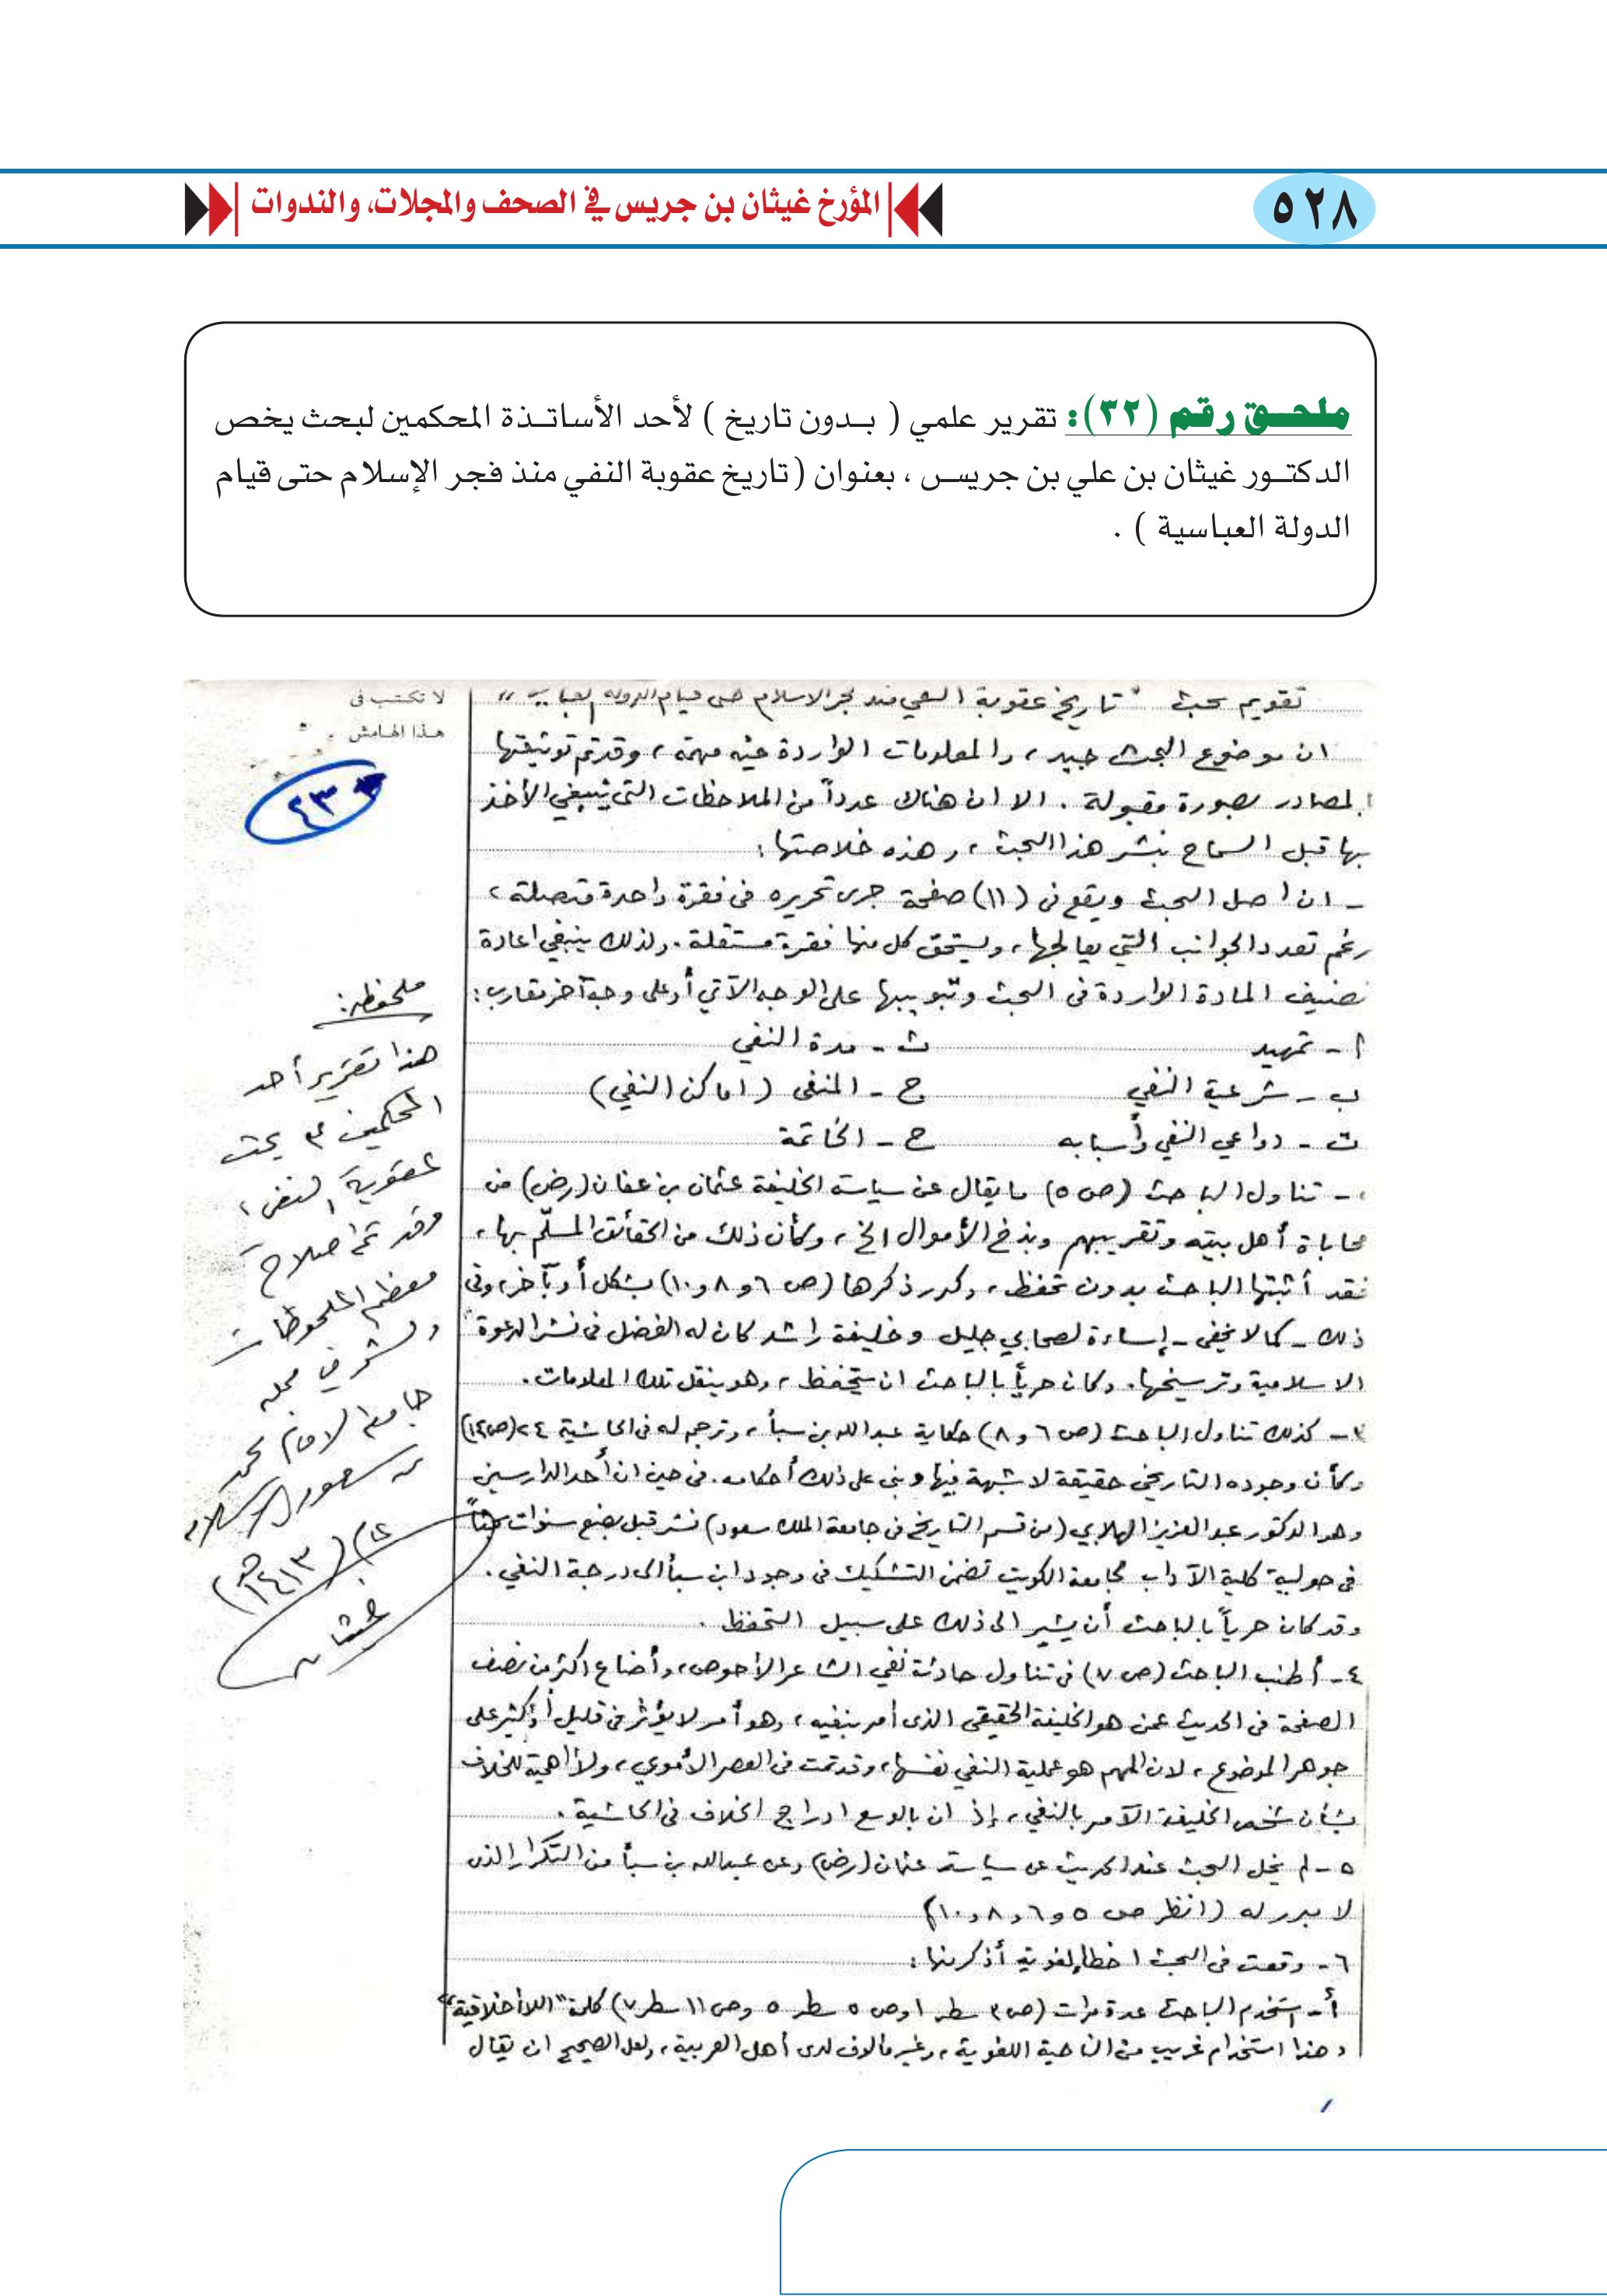 ٥٢٨
المؤرخ غيثان بن جريس في الصحف والمجلات، والندوات
ملحق رقم (٣٢): تقرير علمي ( بدون تاريخ ) لأحد الأساتذة المحكمين لبحث يخص
الدكتور غيثان بن علي بن جريس ، بعنوان (تاريخ عقوبة النفي منذ فجر الإسلام حتى قيام
الدولة العباسية ) .
تقويم بحث "تاريخ عقوبة النفي منذ فجر الاسلام حتى قيام الدولة العباسية"
ان موضوع البحث جيد، والمعلومات الواردة فيه مهمة، وقد تم توثيقها
بالمصادر بصورة مقبولة. الا ان هناك عدداً من الملاحظات التي ينبغي الأخذ
بها قبل السماح بنشر هذا البحث، وهذه خلاصتها:
- ان اصل البحث ويقع في (١١) صفحة جرى تحريره في فقرة واحدة متصلة،
رغم تعدد الجوانب التي يعالجها، ويستحق كل منها فقرة مستقلة. ولذلك ينبغي اعادة
تصنيف المادة الواردة في البحث وتبويبها على الوجه الآتي أو على وجه آخر مقارب:
أ - تمهيد ث - مدة النفي
ب - شرعية النفي ج - المنفى (اماكن النفي)
ت - دواعي النفي وأسبابه ح - الخاتمة
- تناول الباحث (ص ٥) ما يقال عن سياسة الخليفة عثمان بن عفان (رض) من
محاباة أهل بيته وتقريبهم وبذخ الأموال الخ، وكأن ذلك من الحقائق المسلّم بها،
فقد أثبتها الباحث بدون تحفظ، وكرر ذكرها (ص ٦ و ٨ و ١٠) بشكل أو بآخر، وفي
ذلك - كما لا يخفى - إساءة لصحابي جليل وخليفة راشد كان له الفضل في نشر الدعوة
الاسلامية وترسيخها. وكان حرياً بالباحث ان يتحفظ، وهو ينقل تلك المعلومات.
٣- كذلك تناول الباحث (ص ٦ و ٨) حكاية عبدالله بن سبأ، وترجم له في الحاشية ٢٤ (ص ١٤)
وكأن وجوده التاريخي حقيقة لا شبهة فيها وبنى على ذلك أحكامه. في حين ان أحد الدارسين
وهو الدكتور عبدالعزيز الهلابي (من قسم التاريخ في جامعة الملك سعود) نشر قبل بضع سنوات بحثاً
في حولية كلية الآداب بجامعة الكويت تضمن التشكيك في وجود ابن سبأ الى درجة النفي.
وقد كان حرياً بالباحث أن يشير الى ذلك على سبيل التحفظ.
٤- أطنب الباحث (ص ٧) في تناول حادثة نفي الشاعر الأحوص، وأضاع اكثر من نصف
الصفحة في الحديث عمن هو الخليفة الحقيقي الذى أمر بنفيه، وهو أمر لا يؤثر في قليل أو كثير على
جوهر الموضوع، لان المهم هو عملية النفي نفسها، وقد تمت في العصر الأموي، ولا أهمية للخلاف
بشأن شخص الخليفة الآمر بالنفي، إذ ان بالوسع ادراج الخلاف في الحاشية.
٥- لم يخل البحث عند الحديث عن سياسة عثمان (رض) وعن عبدالله بن سبأ من التكرار الذى
لا مبرر له (انظر ص ٥ و ٦ و ٨ و ١٠)
٦- وقعت في البحث اخطاء لغوية أذكر منها:
أ- استخدم الباحث عدة مرات (ص ٣ سطر ١ وص ٥ سطر ٥ وص ١١ سطر ٧) كلمة "اللاأخلاقية"
وهذا استخدام غريب من الناحية اللغوية، وغير مألوف لدى أهل العربية، ولعل الصحيح ان يقال
لا تكتب في
هذا الهامش
٤٣
ملحوظة:
هذا تقرير أحد
المحكمين بحث
عقوبة النفي،
وقد تم اصلاح
معظم الملحوظات
ونشر في مجلة
جامعة الامام محمد
بن سعود الاسلامية
(١٤١٣هـ)
غيثان